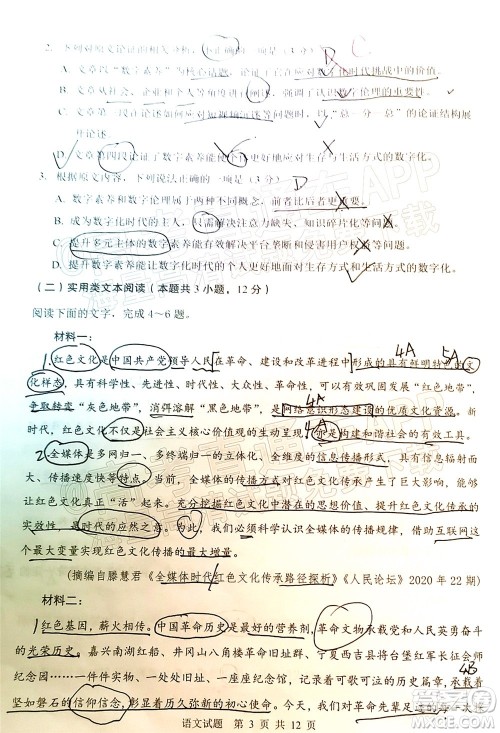 2. 下列对原文论证的相关分析，不正确的一项是（3分）
A. 文章以“数字素养”为核心话题，论证了它在面对数字化时代挑战中的价值。
B. 文章从社会、企业和个人等角度进行阐述，强调了认识数字伦理的重要性。
C. 文章第一段在论述如何应对短视频沉迷等问题时，以“总—分—总”的论证结构展
开论述。
D. 文章第四段论证了数字素养能使个体更好地应对生存与生活方式的数字化。
3. 根据原文内容，下列说法正确的一项是（3分）
A. 数字素养与数字伦理属于两种不同概念，前者比后者更重要。
B. 成为数字化时代的主人，只需解决注意力缺失、知识碎片化等问题。
C. 提升多元主体的数字素养能有效解决平台垄断和侵害用户权利等问题。
D. 提升数字素养能让数字化时代的个人更好地面对生存方式和生活方式的数字化。
（二）实用类文本阅读（本题共3小题，12分）
阅读下面的文字，完成4～6题。
材料一：
1.红色文化是中国共产党领导人民在革命、建设和改革进程中形成的具有鲜明特色的文
化样态，具有科学性、先进性、时代性、大众性、革命性，可以有效巩固发展“红色地带”，
争取转变“灰色地带”，消弭溶解“黑色地带”，是网络意识形态建设的优质文化资源。
红色文化不仅是社会主义核心价值观的生动体现，亦是构建和谐社会的有效工具。
2.全媒体是多网归一、多端合一的立体化、全方位的信息传播新样式，具有信息辐射面
广、传播速度快等特点。当前，全媒体的传播方式对红色文化传承提出了新要求，如何
让红色文化真正“活”起来，充分挖掘红色文化中的思想价值，提升红色文化传播的
实效性，是时代的应然之意。为此，我们必须认识全媒体的传播规律，借助互联网这
个最大变量实现红色文化传播的最大增量。
(摘编自滕慧君《全媒体时代红色文化传承路径探析》《人民论坛》2020年22期)
材料二：
1.红色基因，薪火相传。中国革命历史是最好的营养剂，革命文物承载党和人民英勇奋斗
的光荣历史。嘉兴南湖红船、井冈山八角楼革命旧址群、宁夏西吉县将台堡红军长征会师
纪念园……一件件实物、一处处遗址、一座座纪念馆，记录了可歌可泣的历史篇章，承载着
坚如磐石的信仰信念，彰显着历久弥新的初心使命。今天，我们对革命先辈最大的告慰
语文试题 第3页共12页